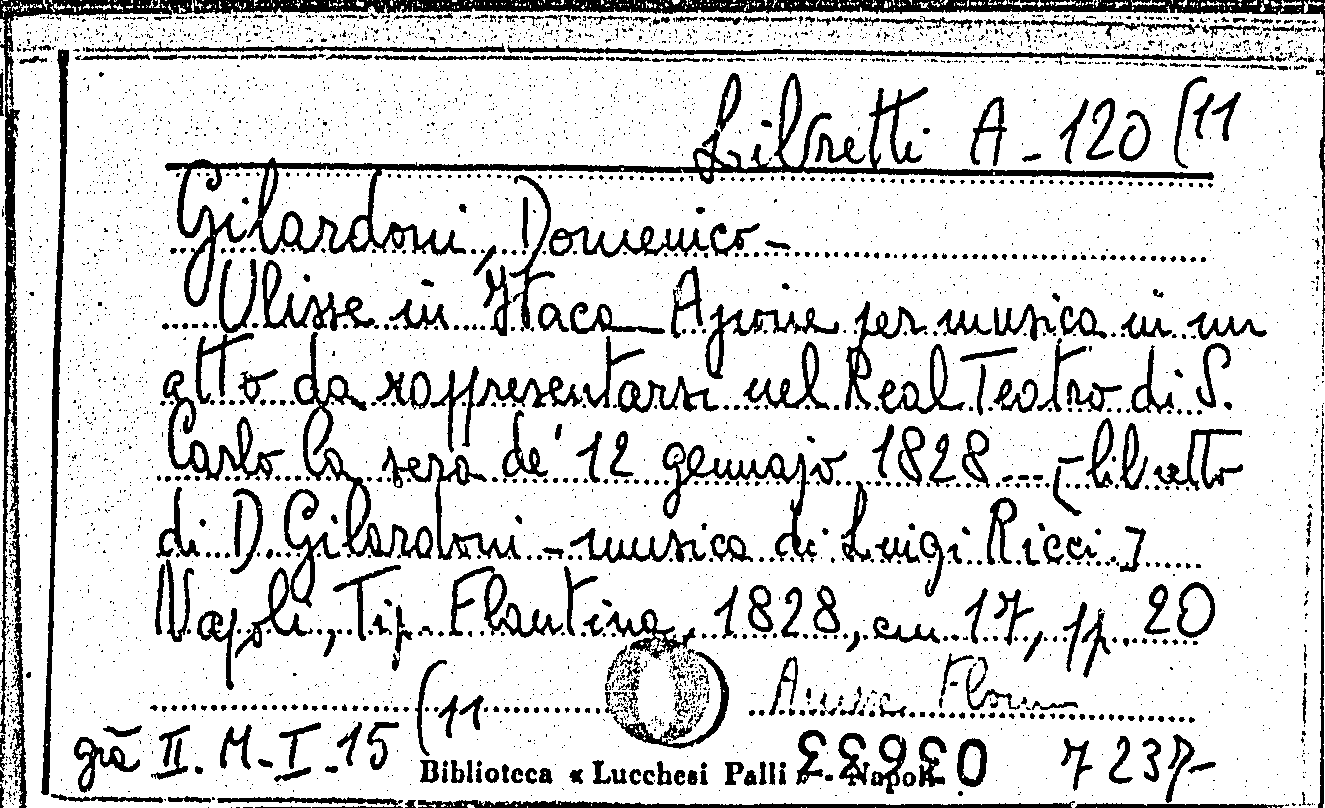 Libretti A - 120 (11
Gilardoni, Domenico -
Ulisse in Itaca Azione per musica in un
atto da rappresentarsi nel Real Teatro di S.
Carlo la sera de' 12 gennajo 1828 --- [libretto
di D. Gilardoni - musica di Luigi Ricci]
Napoli, Tip. Flautina, 1828, cm 17, pp. 20
già II. M-I-15 (11
Biblioteca « Lucchesi Palli » - Napoli 7237-